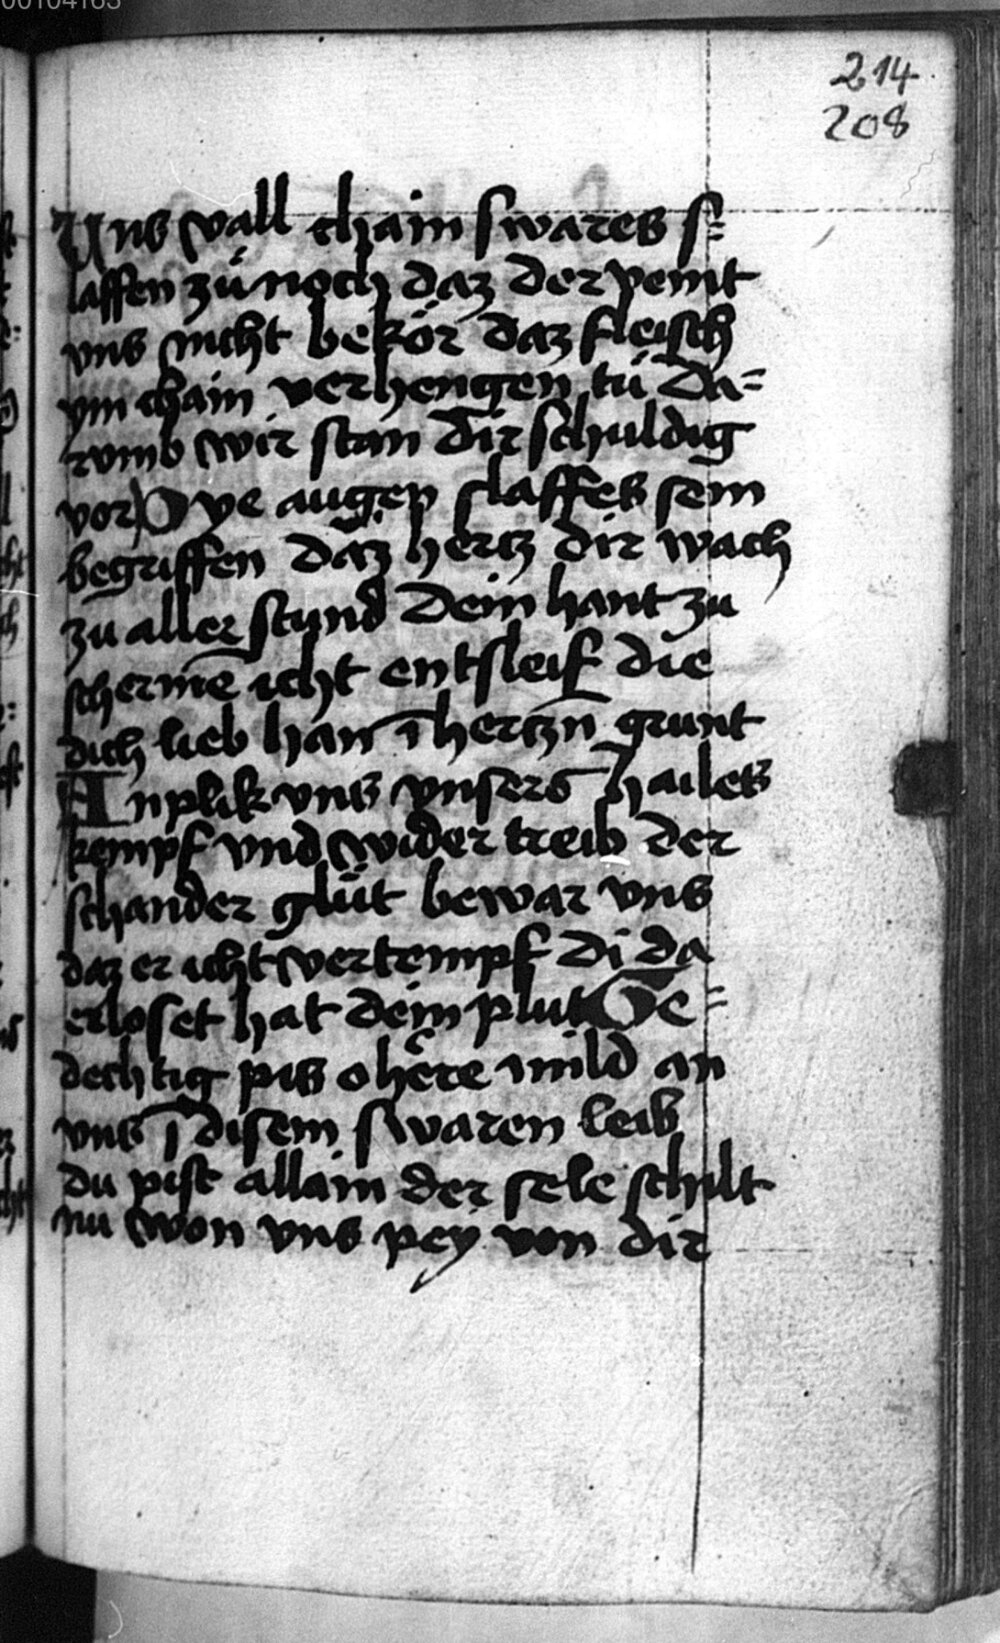 00104163
214
208
Uns vall chain swares s=
laffen zů noch daz der veint
vns nicht bekör daz fleisch
ym chain verhengen tů Da=
rvmb wir stan dir schuldig
vor Dye augen slaffes sein
begriffen daz hertz dir wach
zu aller stund Dein hant zu
schermē icht entsleif die
dich lieb han ī hertzn̄ grunt
Anplik vns vnsers hailes
kempf vnd wider treib der
schander glůt bewar vns
daz er icht vertempf Di da
erloset hat dein plut Ge=
dechtig pis o here mild an
vns ī disem swaren leib
du pist allain der sele schilt
nu won vns pey von dir